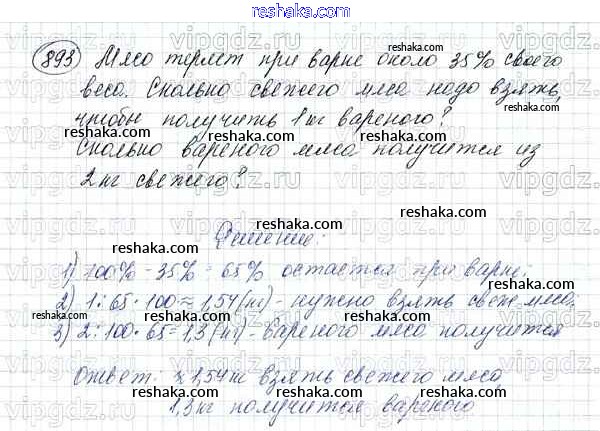 reshaka.com
893 Мясо теряет при варке около 35% своего
веса. Сколько свежего мяса надо взять,
чтобы получить 1 кг вареного?
Сколько вареного мяса получится из
2 кг свежего?
Решение:
1) 100% - 35% = 65% остается при варке;
2) 1 : 65 · 100 ≈ 1,54 (кг) - нужно взять свеж. мяса;
3) 2 : 100 · 65 = 1,3 (кг) - вареного мяса получится
Ответ: ≈ 1,54 кг взять свежего мяса,
1,3 кг получится вареного
reshaka.com